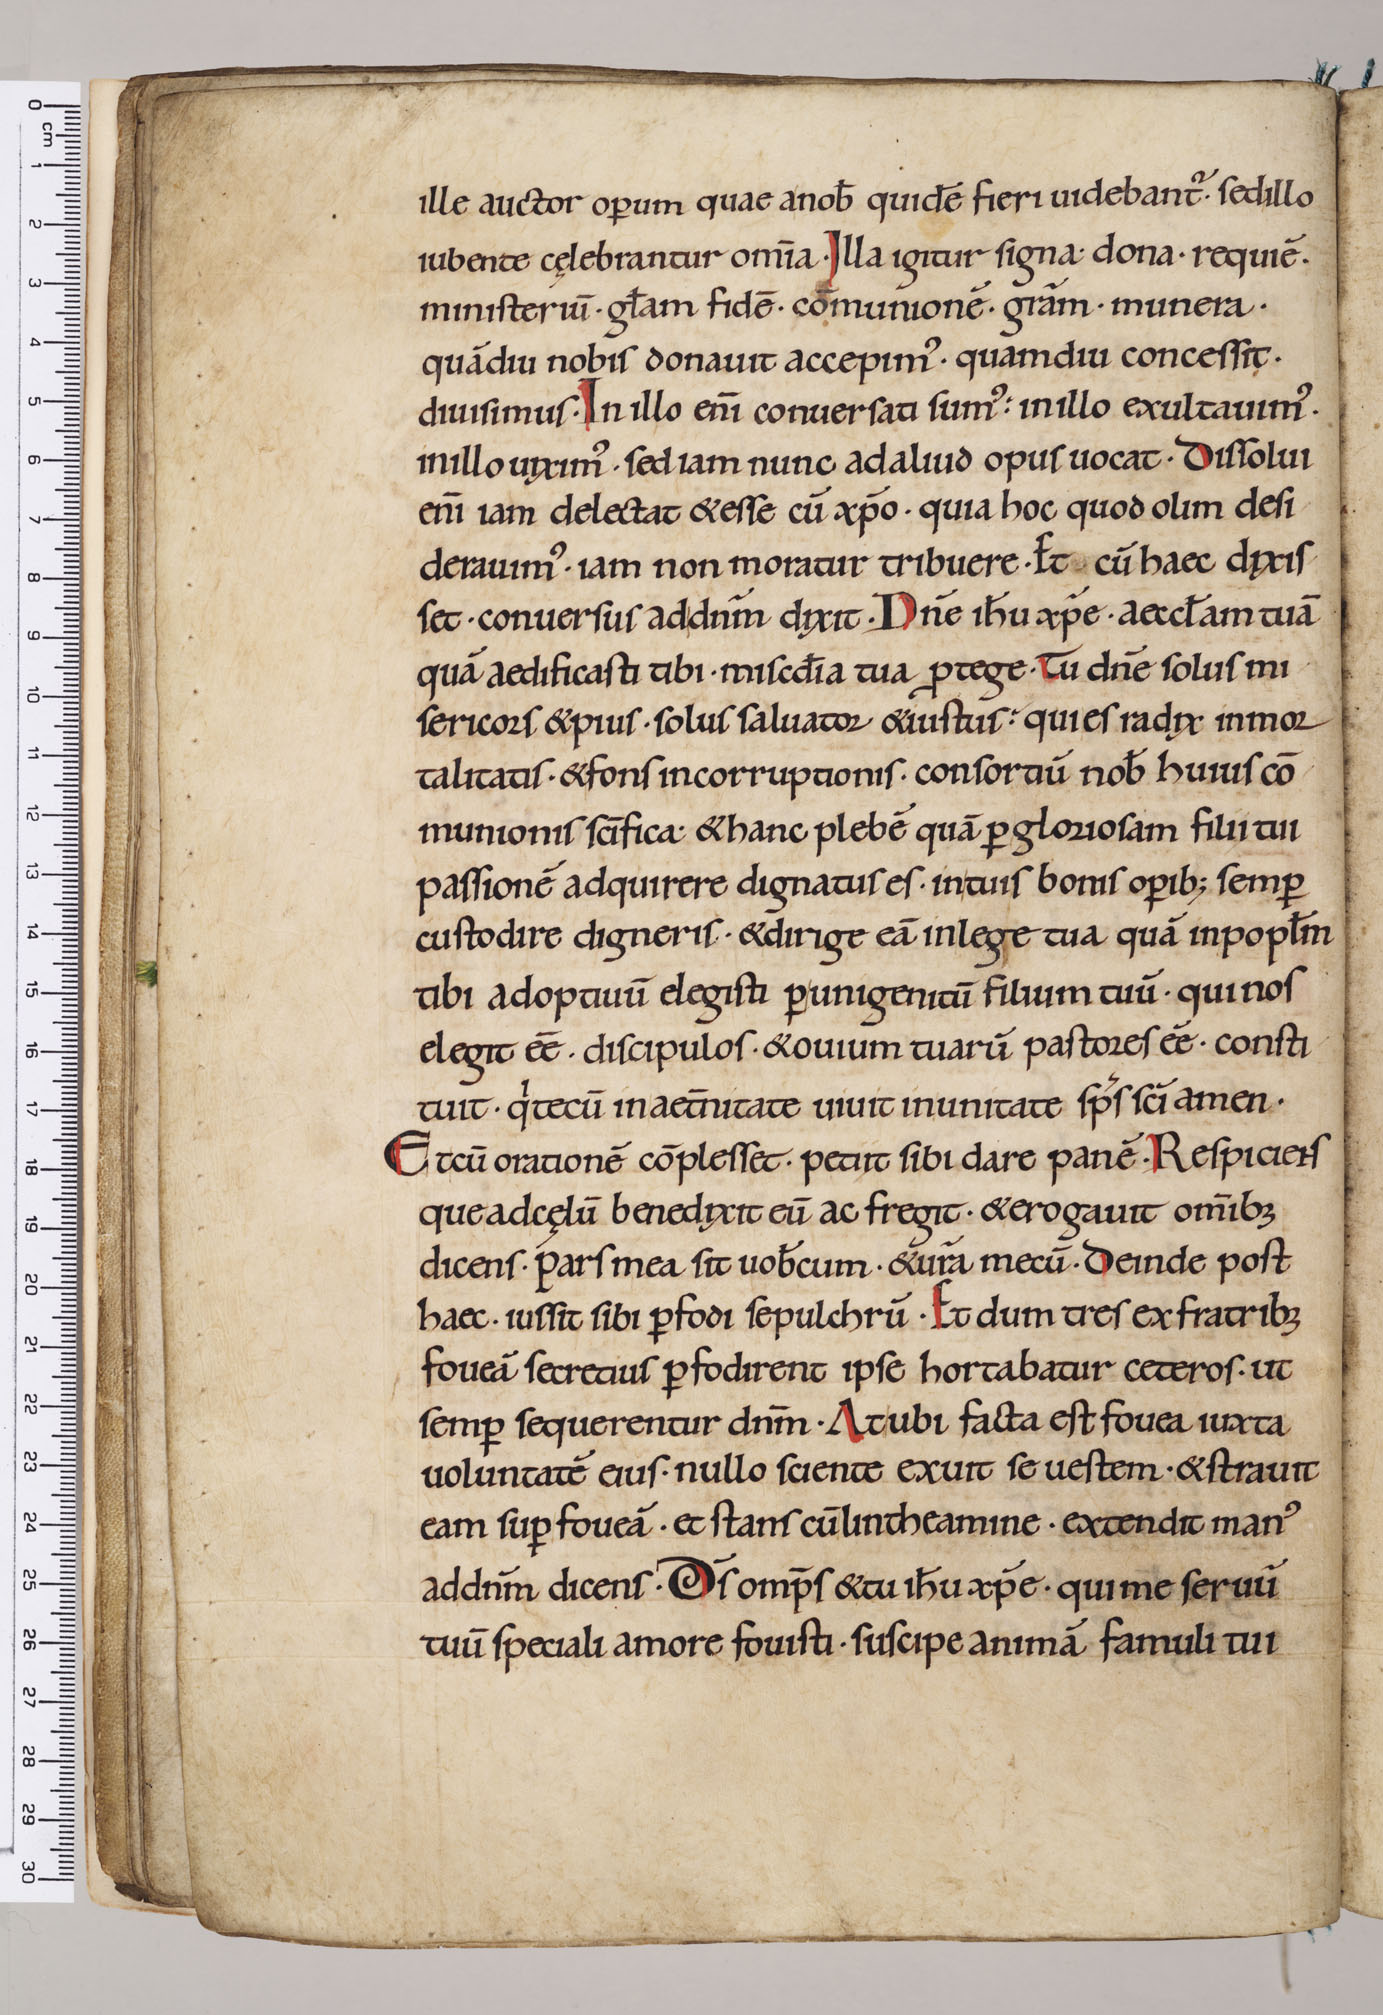 ille auctor oꝑum quae anob̄ quidē fieri uidebant᷑· sedillo
iubente cęlebrantur om̄ia· Illa igitur signa· dona· requiē·
ministeriū· gl̄am fidē· cōmunionē· gr̄am· munera·
quādiu nobis donauit accepimꝰ· quamdiu concessit·
diuisimus· In illo eni̅ conuersati sumꝰ: inillo exultauimꝰ·
inillo uiximꝰ· sed iam nunc adaliud opus uocat· Dissolui
eni̅ iam delectat &esse cū xp̄o· quia hoc quod olim desi
derauimꝰ· iam non moratur tribuere· Et cū haec dixis
set· conuersus addnm̄ dixit· Dn̄e ih̄u xp̄e· aeccl̄am tuā
quā aedificasti tibi· miscd̄ia tua ꝓtege· Tu dn̄e solus mi
sericors &pius· solus saluator &iustus: qui es radix inmor
talitatis· &fons incorruptionis· consortiū nob̄ huius cō
munionis sc̄ifica· &hanc plebē quā ꝑgloriosam filii tui
passionē adquirere dignatus es· intuis bonis oꝑib; semꝑ
custodire digneris· &dirige eā inlege tua quā inpopl̄m
tibi adoptiuū elegisti ꝑunigenitū filium tuū· qui nos
elegit ēē· discipulos· &ouium tuarū pastores ēē· consti
tuit· qͥtecū inaet̄nitate uiuit inunitate sp̄s sc̄i amen·
Et cū orationē cōplesset· petiit sibi dare panē· Respiciens
que adcęlū benedixit eū ac fregit· &erogauit om̄ibꝫ
dicens· Pars mea sit uob̄cum· &ur̄a mecū· Deinde post
haec· iussit sibi ꝑfodi sepulchrū· Et dum tres ex fratribꝫ
foueā secretius ꝑfodirent ipse hortabatur ceteros· ut
semꝑ sequerentur dnm̄· At ubi facta est fouea iuxta
uoluntatē eius· nullo sciente exuit se uestem· &strauit
eam suꝑ foueā· et stans cū lintheamine· extendit manꝰ
addnm̄ dicens· Ds̄ omp̄s &tu ih̄u xp̄e· qui me seruū
tuū speciali amore fouisti· suscipe animā famuli tui